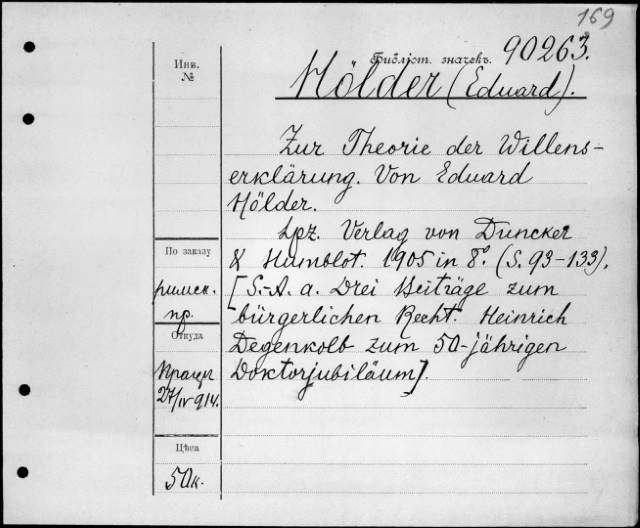 169
Библіот. значекъ. 90263.
Hölder (Eduard).
Инв.
№
Zur Theorie der Willens-
erklärung. Von Eduard
Hölder.
Lpz. Verlag von Duncker
& Humblot. 1905 in 8°. (S. 93-133).
[S.-A. a. Drei Beiträge zum
bürgerlichen Recht. Heinrich
Degenkolb zum 50-jährigen
Doktorjubiläum].
По заказу
римск.
пр.
Откуда
27/IV 914.
Цѣна
50к.